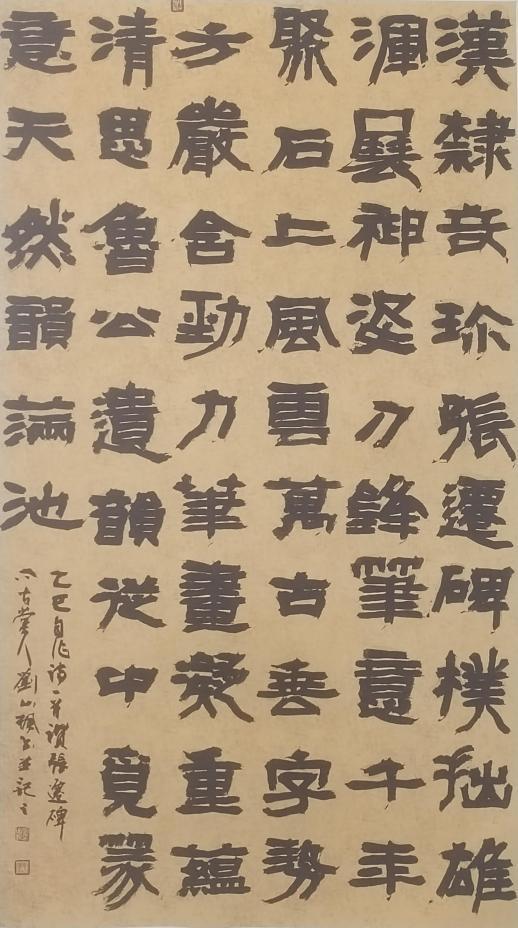 漢隸奇珍張遷碑樸拙雄
渾展神姿刀鋒筆意千年
聚石上風雲萬古垂字勢
方嚴含勁力筆畫凝重蘊
清思魯公遺韻從中覓篆
意天然韻滿池
乙巳自作詩一首讚張遷碑
六古堂人劉山飆書並記之